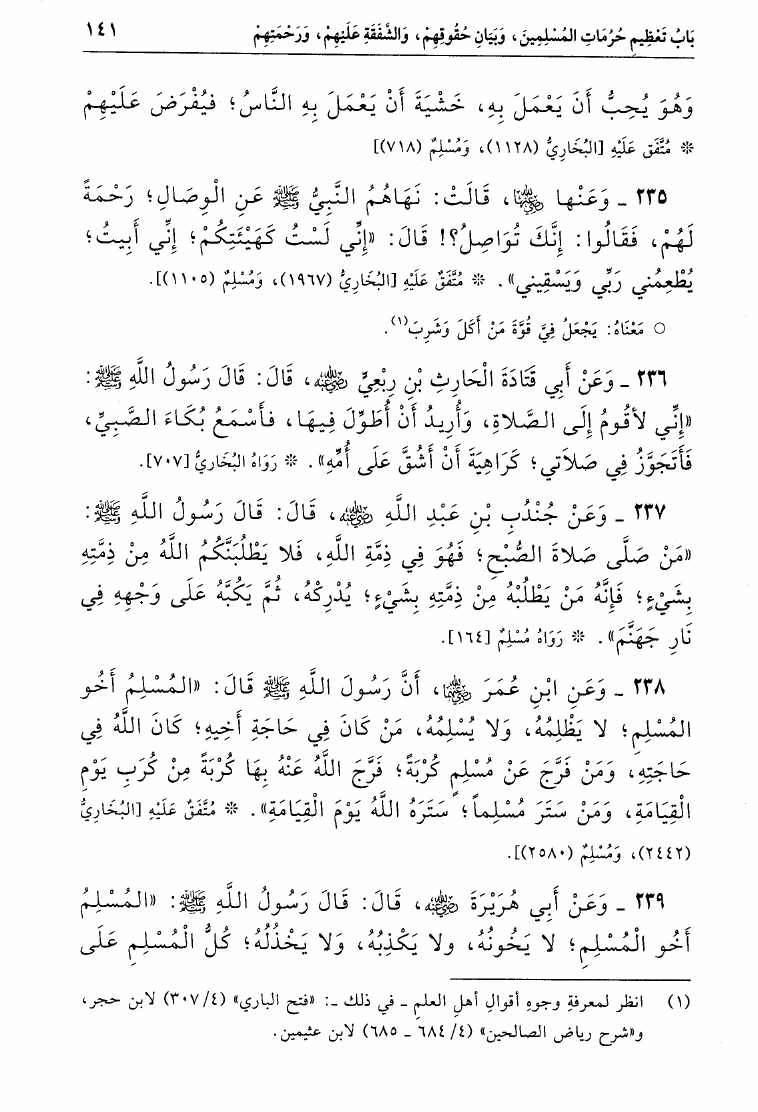 بَابُ تَعْظِيمِ حُرُمَاتِ المُسْلِمِينَ، وَبَيَانِ حُقُوقِهِمْ، وَالشَّفَقَةِ عَلَيْهِمْ، وَرَحْمَتِهِمْ ١٤١
وَهُوَ يُحِبُّ أَنْ يَعْمَلَ بِهِ، خَشْيَةَ أَنْ يَعْمَلَ بِهِ النَّاسُ؛ فَيُفْرَضَ عَلَيْهِمْ
* مُتَّفَق عَلَيْهِ [البُخَارِيُّ (١١٢٨)، وَمُسْلِمٌ (٧١٨)]
٢٣٥ ـ وَعَنْها رضي الله عنها، قَالَتْ: نَهَاهُمُ النَّبِيُّ ﷺ عَنِ الْوِصَالِ؛ رَحْمَةً
لَهُمْ، فَقَالُوا: إِنَّكَ تُوَاصِلُ؟! قَالَ: «إِنِّي لَسْتُ كَهَيْئَتِكُمْ؛ إِنِّي أَبِيتُ؛
يُطْعِمُني رَبِّي وَيَسْقِيني». * مُتَّفَقٌ عَلَيْهِ [البُخَارِيُّ (١٩٦٧)، وَمُسْلِمٌ (١١٠٥)].
○ مَعْنَاهُ: يَجْعَلُ فِيَّ قُوَّةَ مَنْ أَكَلَ وَشَرِبَ(١).
٢٣٦ ـ وَعَنْ أَبِي قَتَادَةَ الْحَارِثِ بْنِ رِبْعِيٍّ رضي الله عنه، قَالَ: قَالَ رَسُولُ اللَّهِ ﷺ:
«إِنِّي لأَقُومُ إِلَى الصَّلاةِ، وَأُرِيدُ أَنْ أُطَوِّلَ فِيهَا، فَأَسْمَعُ بُكَاءَ الصَّبِيِّ،
فَأَتَجَوَّزُ فِي صَلاَتي؛ كَرَاهِيَةَ أَنْ أَشُقَّ عَلَى أُمِّهِ». * رَوَاهُ البُخَارِيُّ [٧٠٧].
٢٣٧ ـ وَعَنْ جُنْدُبِ بْنِ عَبْدِ اللَّهِ رضي الله عنه، قَالَ: قَالَ رَسُولُ اللَّهِ ﷺ:
«مَنْ صَلَّى صَلاةَ الصُّبْحِ؛ فَهُوَ فِي ذِمَّةِ اللَّهِ، فَلا يَطْلُبَنَّكُمُ اللَّهُ مِنْ ذِمَّتِهِ
بِشَيْءٍ؛ فَإِنَّهُ مَنْ يَطْلُبْهُ مِنْ ذِمَّتِهِ بِشَيْءٍ؛ يُدْرِكْهُ، ثُمَّ يَكُبَّهُ عَلَى وَجْهِهِ فِي
نَارِ جَهَنَّمَ». * رَوَاهُ مُسْلِمٌ [١٦٤].
٢٣٨ ـ وَعَنِ ابْنِ عُمَرَ رضي الله عنهما، أَنَّ رَسُولَ اللَّهِ ﷺ قَالَ: «المُسْلِمُ أَخُو
المُسْلِمِ؛ لا يَظْلِمُهُ، وَلا يُسْلِمُهُ، مَنْ كَانَ فِي حَاجَةِ أَخِيهِ؛ كَانَ اللَّهُ فِي
حَاجَتِهِ، وَمَنْ فَرَّجَ عَنْ مُسْلِمٍ كُرْبَةً؛ فَرَّجَ اللَّهُ عَنْهُ بِهَا كُرْبَةً مِنْ كُرَبِ يَوْمِ
الْقِيَامَةِ، وَمَنْ سَتَرَ مُسْلِماً؛ سَتَرَهُ اللَّهُ يَوْمَ الْقِيَامَةِ». * مُتَّفَقٌ عَلَيْهِ [البُخَارِيُّ
(٢٤٤٢)، وَمُسْلِمٌ (٢٥٨٠)].
٢٣٩ ـ وَعَنْ أَبِي هُرَيْرَةَ رضي الله عنه، قَالَ: قَالَ رَسُولُ اللَّهِ ﷺ: «المُسْلِمُ
أَخُو الْمُسْلِمِ؛ لا يَخُونُهُ، ولا يَكْذِبُهُ، وَلا يَخْذُلُهُ؛ كُلُّ الْمُسْلِمِ عَلَى
(١) انظر لمعرفةِ وجوهِ أقوالِ أهلِ العلم ـ في ذلك ـ: «فتح الباري» (٤/٣٠٧) لابن حجر،
و«شرح رياض الصالحين» (٤/ ٦٨٤ ـ ٦٨٥) لابن عثيمين.